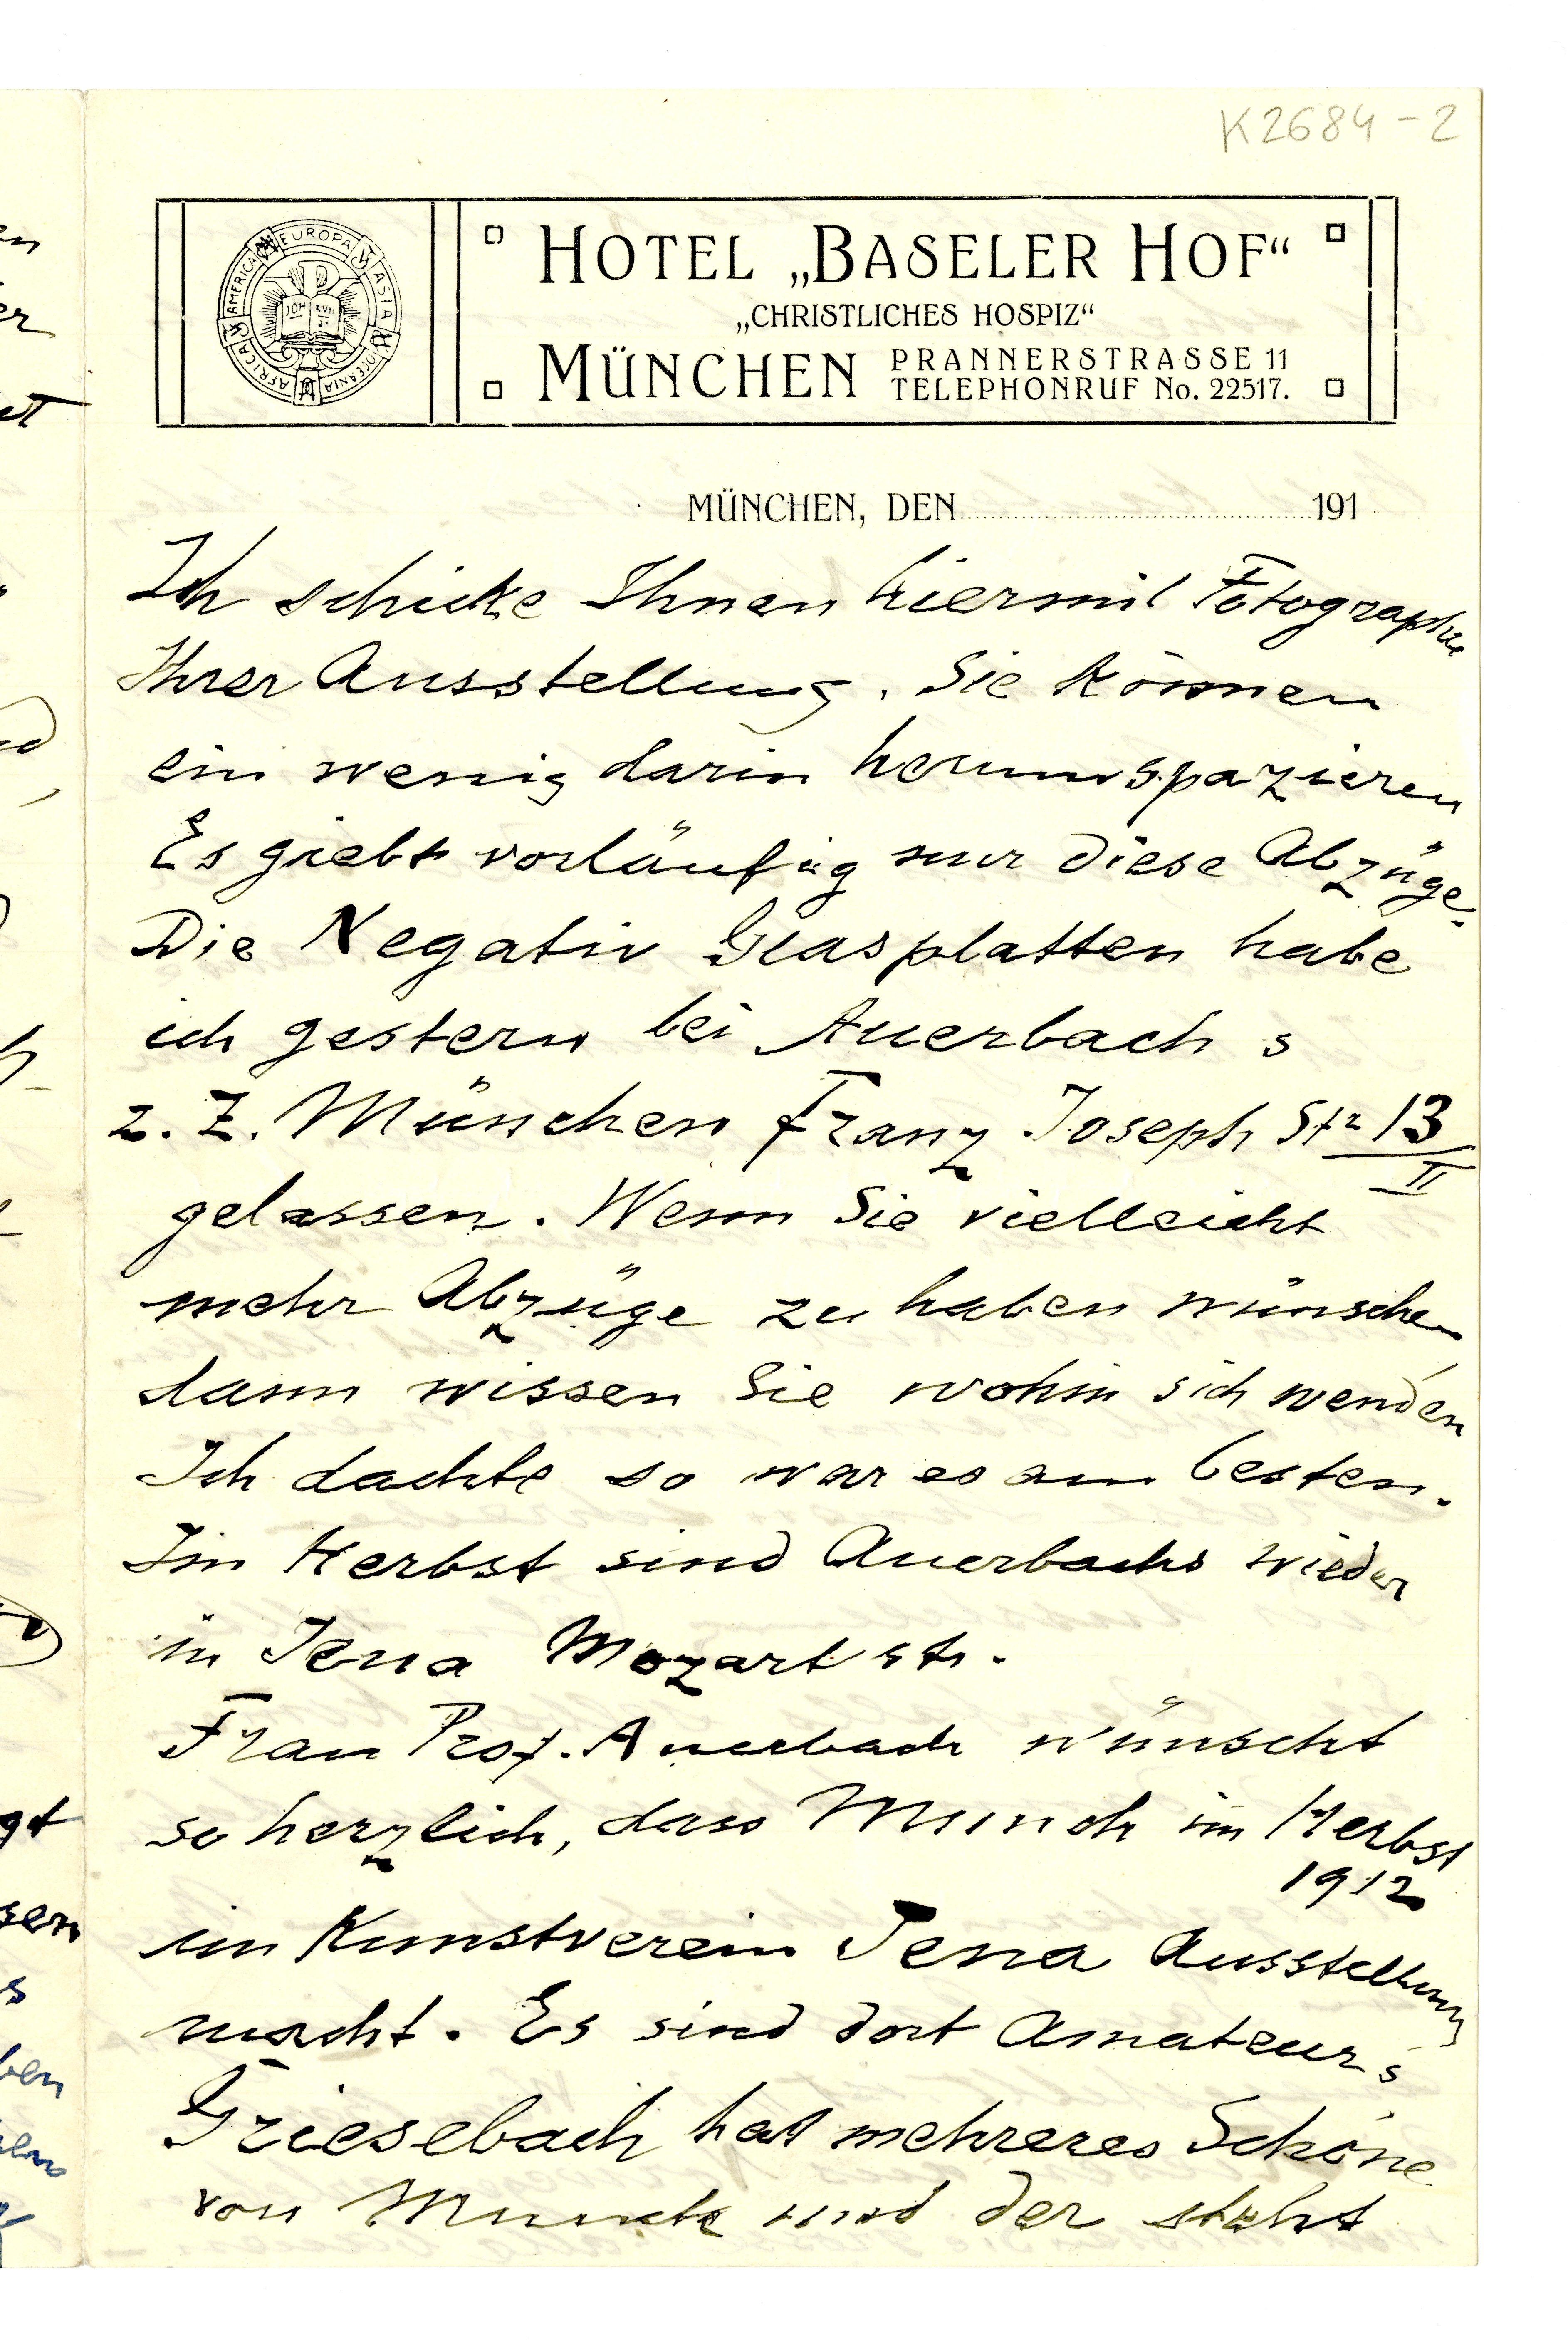 K2684-2
EUROPA ASIA POLYNESIA AFRICA AMERICA
JOH XVII 21
HOTEL „BASELER HOF“
„CHRISTLICHES HOSPIZ“
MÜNCHEN PRANNERSTRASSE 11
TELEPHONRUF No. 22517.
MÜNCHEN, DEN 191
Ich schicke Ihnen hiermit Fotographie
Ihrer Ausstellung. Sie können
ein wenig darin herumspazieren
Es giebt vorläufig nur diese Abzüge.
Die Negativ Glasplatten habe
ich gestern bei Auerbach s
z. Z. München Franz Joseph Str 13
II
gelassen. Wenn Sie vielleicht
mehr Abzüge zu haben wünschen
dann wissen Sie wohin sich wenden
Ich dachte so war es am besten.
Im Herbst sind Auerbachs wieder
in Jena Mozart str.
Frau Prof. Auerbach wünscht
so herzlich, dass Munch im Herbst
1912
im Kunstverein Jena Ausstellung
macht. Es sind dort Amateur's
Griesebach hat mehreres Schöne
von Munch und der steht